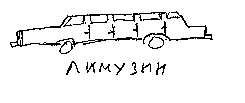 ЛИМУЗИН